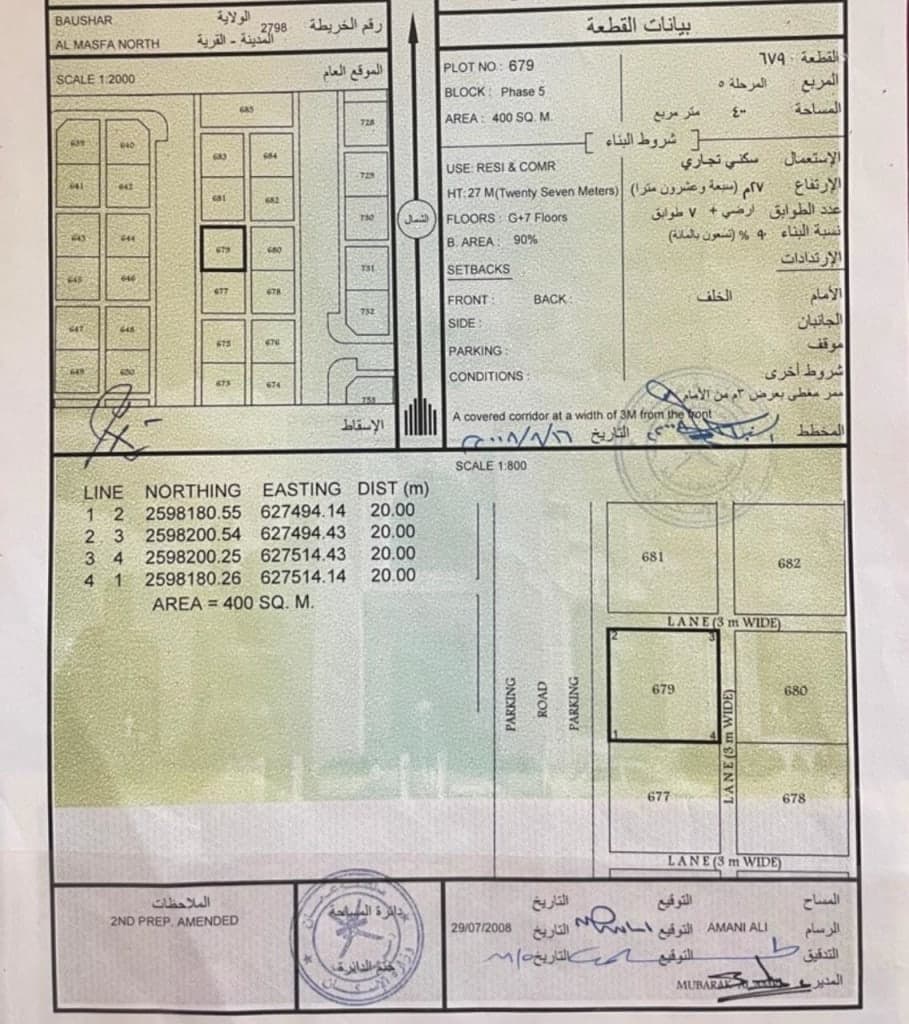 BAUSHAR الولاية
AL MASFA NORTH المدينة - القرية
رقم الخريطة 2798
SCALE 1:2000 الموقع العام
685
683 684
681 682
679 680
677 678
675 676
673 674
639 640
641 642
643 644
645 646
647 648
649 650
728
729
730
731
732
733
الشمال
الإسقاط
بيانات القطعة
PLOT NO.: 679 القطعة ٦٧٩
BLOCK : Phase 5 المربع المرحلة ٥
AREA : 400 SQ. M. المساحة ٤٠٠ متر مربع
[ شروط البناء ]
USE: RESI & COMR الإستعمال سكني تجاري
HT: 27 M(Twenty Seven Meters) الإرتفاع ٢٧م (سبعة وعشرون مترا)
FLOORS : G+7 Floors عدد الطوابق ارضي + ٧ طوابق
B. AREA : 90% نسبة البناء ٩٠ % (تسعون بالمائة)
SETBACKS الإرتدادات
FRONT : BACK : الخلف الأمام
SIDE : الجانبان
PARKING : موقف
CONDITIONS : شروط أخرى
ممر مغطى بعرض ٣م من الأمام
A covered corridor at a width of 3M from the front
التاريخ المخطط
SCALE 1:800
LINE NORTHING EASTING DIST (m)
1 2 2598180.55 627494.14 20.00
2 3 2598200.54 627494.43 20.00
3 4 2598200.25 627514.43 20.00
4 1 2598180.26 627514.14 20.00
AREA = 400 SQ. M.
681 682
LANE (3 m WIDE)
2 3
679 680
1 4
677 678
LANE (3 m WIDE)
LANE (3 m WIDE)
PARKING
ROAD
PARKING
الملاحظات
2ND PREP. AMENDED
دائرة المساحة
ختم الدائرة
المساح التوقيع التاريخ
الرسام AMANI ALI التوقيع التاريخ 29/07/2008
التدقيق التوقيع التاريخ
المدير MUBARAK